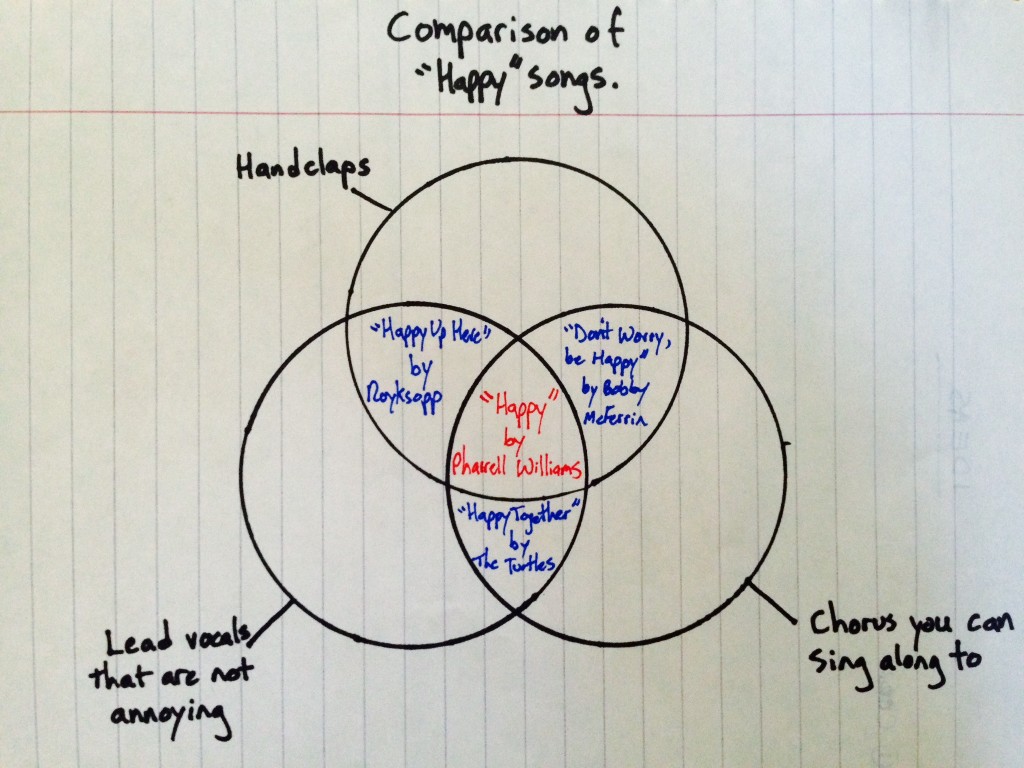 Comparison of
"Happy" songs.
Handclaps
"Happy Up Here"
by
Royksopp
"Don't Worry,
be Happy"
by Bobby
McFerrin
"Happy"
by
Pharrell Williams
"Happy Together"
by
The Turtles
Lead vocals
that are not
annoying
Chorus you can
sing along to